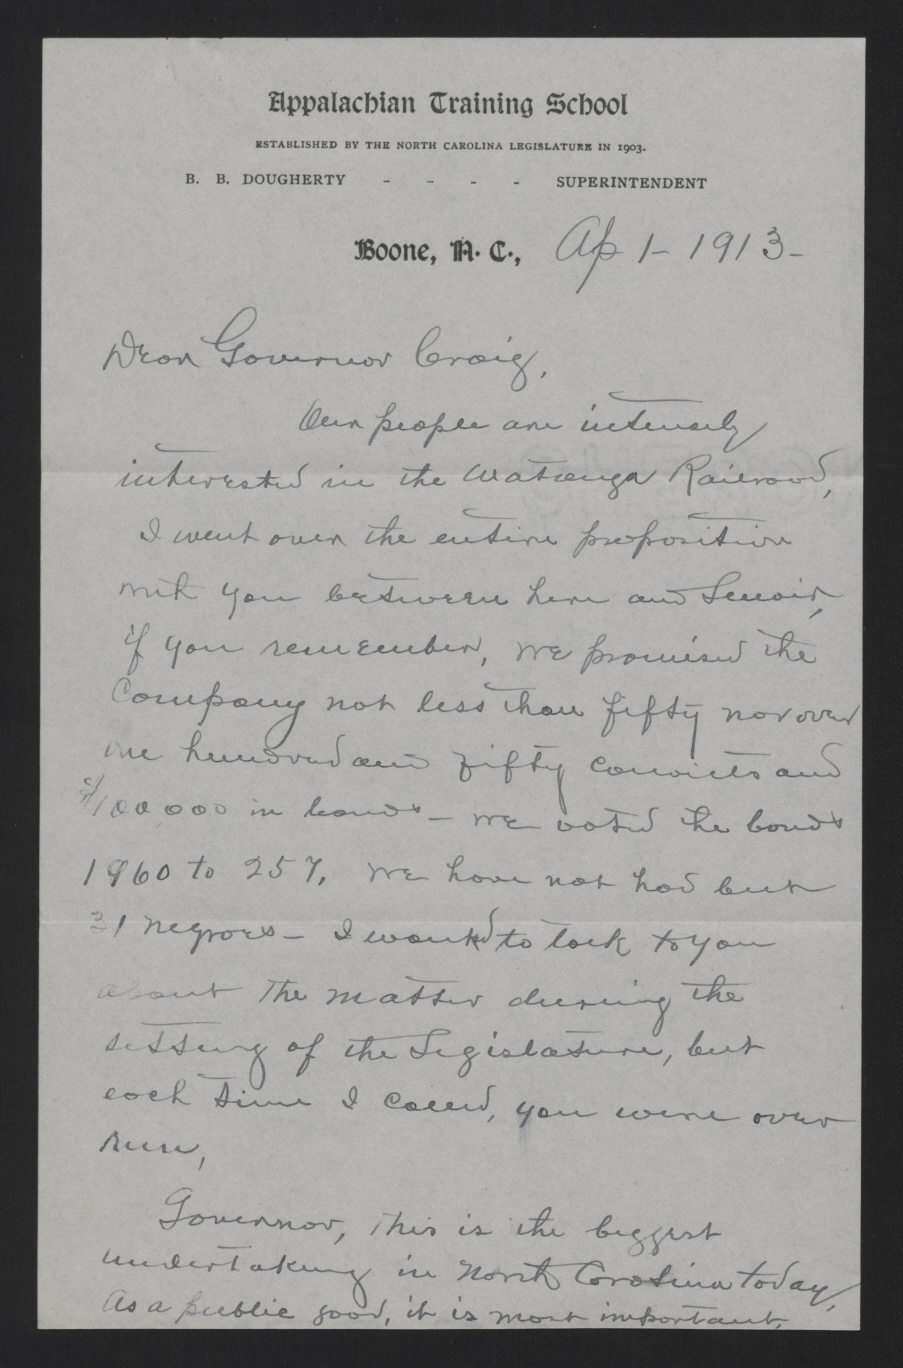 Appalachian Training School
ESTABLISHED BY THE NORTH CAROLINA LEGISLATURE IN 1903.
B. B. DOUGHERTY - - - - SUPERINTENDENT
Boone, N. C., Ap 1- 1913-
Dear Governor Craig,
Our people are intensely
interested in the Watauga Railroad,
I went over the entire proposition
with you between here and Lenoir,
if you remember, we promised the
Company not less than fifty nor over
one hundred and fifty convicts and
$100000 in bonds - we voted the bonds
1960 to 257, we have not had but
31 negroes - I wanted to talk to you
about the matter during the
setting of the Legislature, but
each time I called, you were over
run,
Governor, this is the biggest
undertaking in North Carolina today,
As a public good, it is most important,